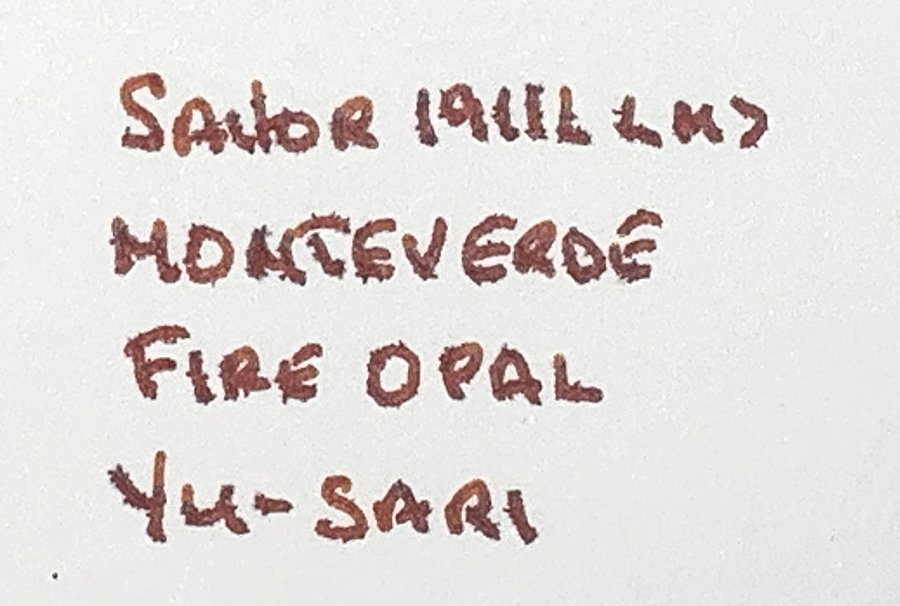 SAILOR 1911L <M>
MONTEVERDE
FIRE OPAL
YU-SARI